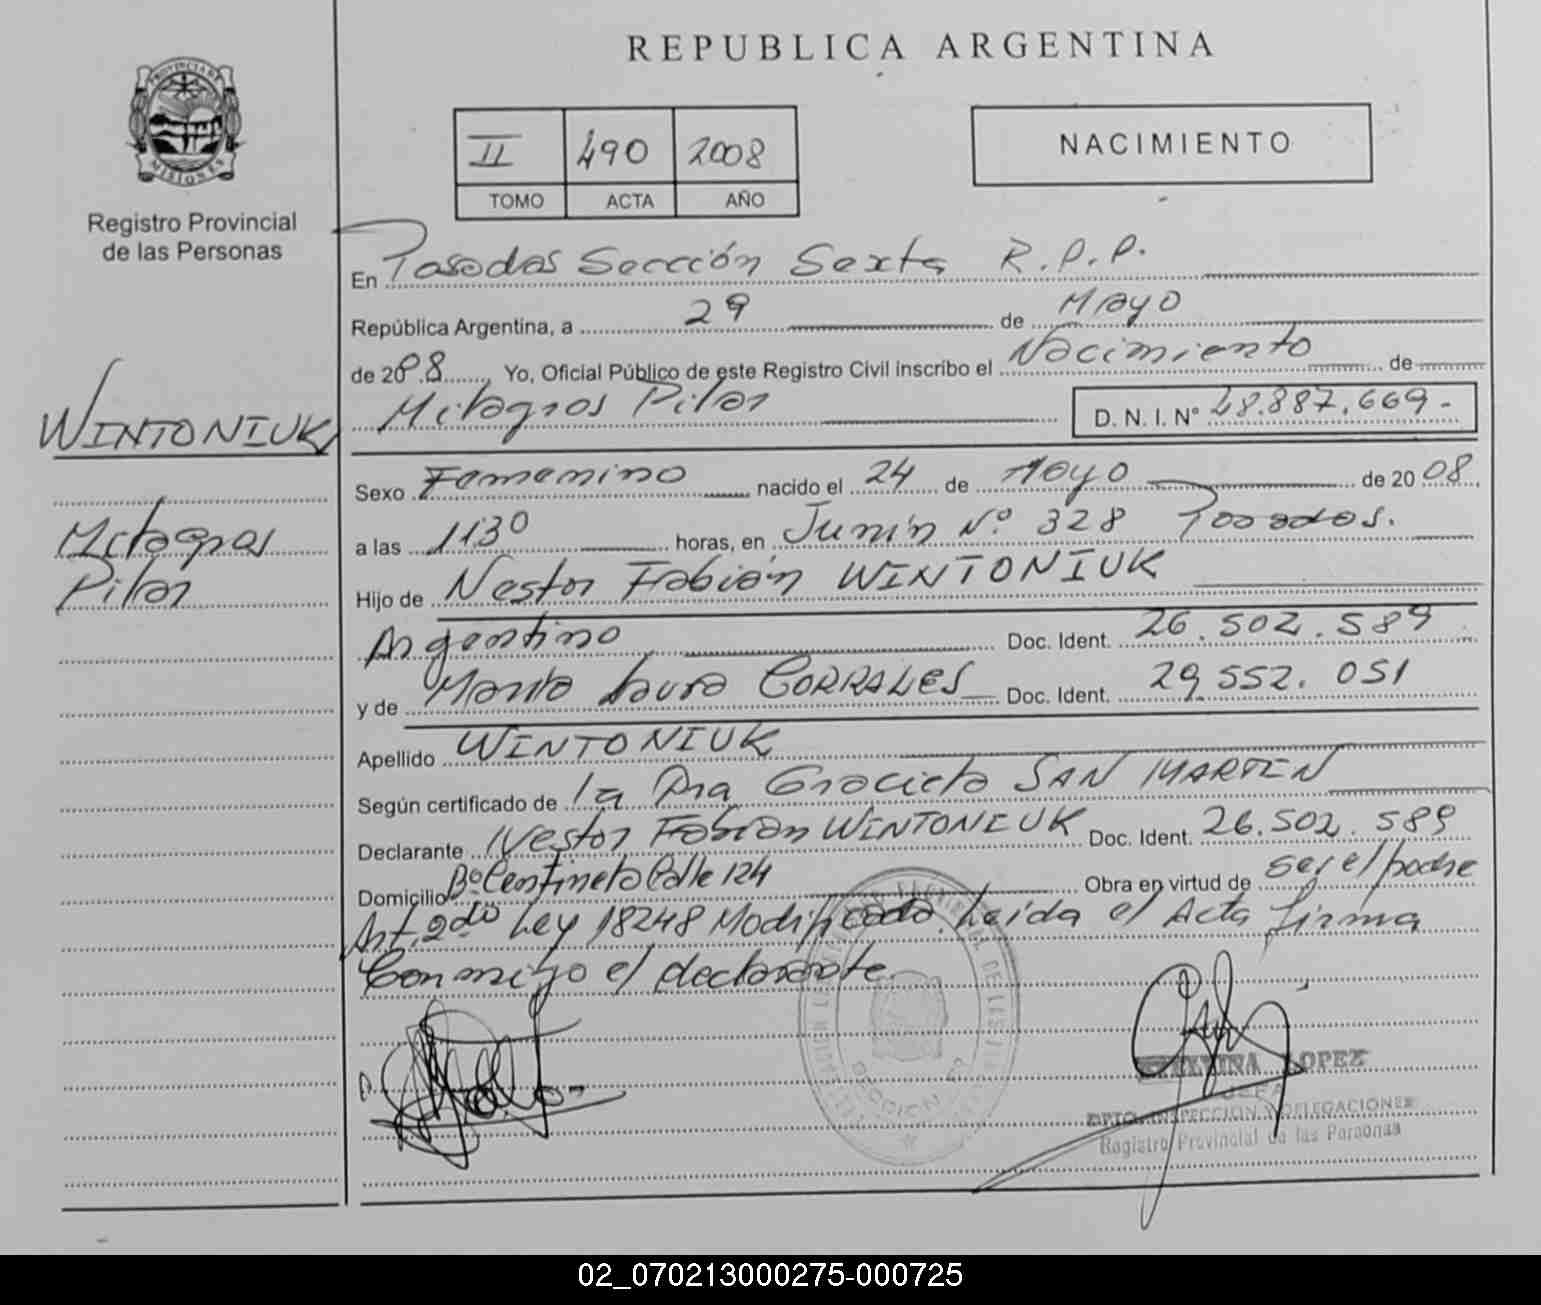 REPUBLICA ARGENTINA
PROVINCIA DE
MISIONES
Registro Provincial
de las Personas
II 490 2008
TOMO ACTA AÑO
NACIMIENTO
En Posadas Sección Sexta R.P.P.
República Argentina, a 29 de Mayo
de 2008 Yo, Oficial Público de este Registro Civil inscribo el Nacimiento de
Milagros Pilar D. N. I. Nº 48.887.669-
WINTONIUK
Milagros
Pilar
Sexo Femenino nacido el 24 de Mayo de 2008
a las 1130 horas, en Junín Nº 328 Posadas.
Hijo de Nestor Fabián WINTONIUK
Argentino Doc. Ident. 26.502.589
y de María Laura CORRALES Doc. Ident. 29.552.051
Apellido WINTONIUK
Según certificado de la Dra Graciela SAN MARTIN
Declarante Nestor Fabián WINTONIUK Doc. Ident. 26.502.589
Domicilio Bº Centinela Calle 124 Obra en virtud de ser el padre
Art. 2do Ley 18248 Modificado. Leída el Acta firma
Conmigo el declarante.
LOPEZ
DPTO. INSPECCION Y DELEGACIONES
Registro Provincial de las Personas
SECCION
02_070213000275-000725